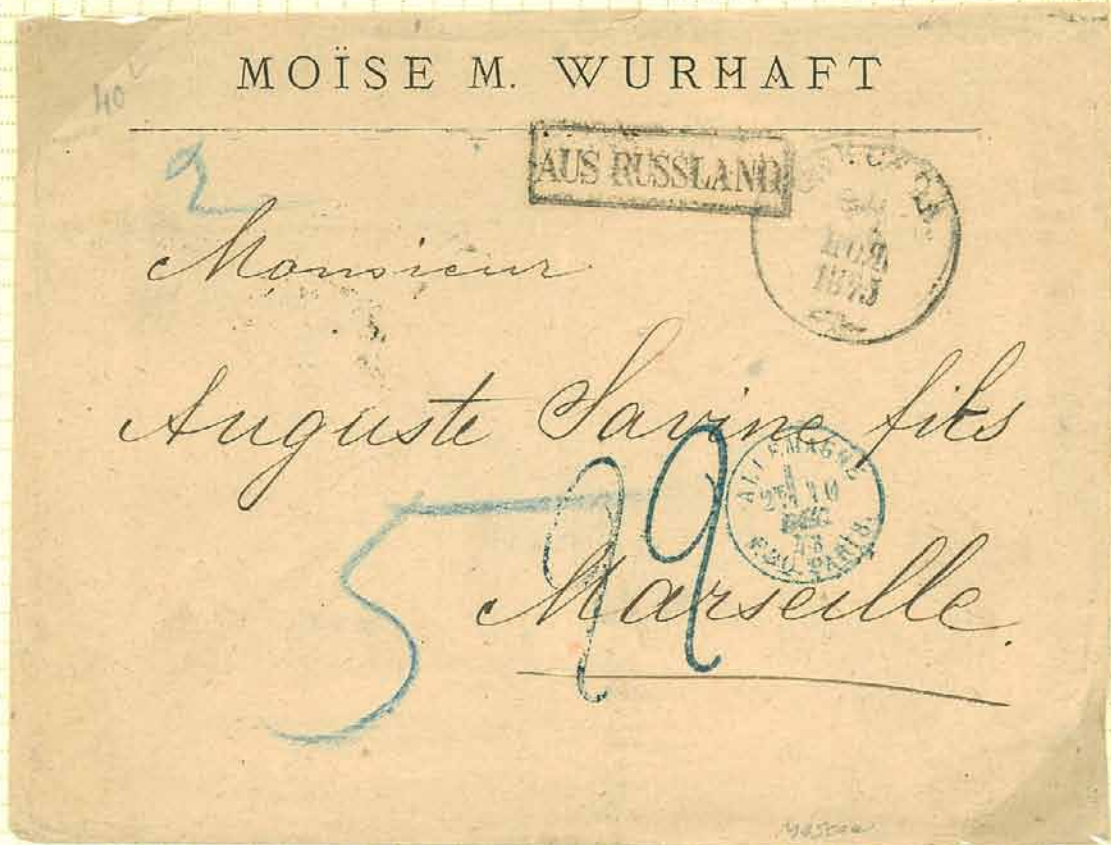 MOÏSE M. WURHAFT
40
2
AUS RUSSLAND
1873
Monsieur
Auguste Savine fils
ALLEMAGNE
10
PARIS
5
22
Marseille.